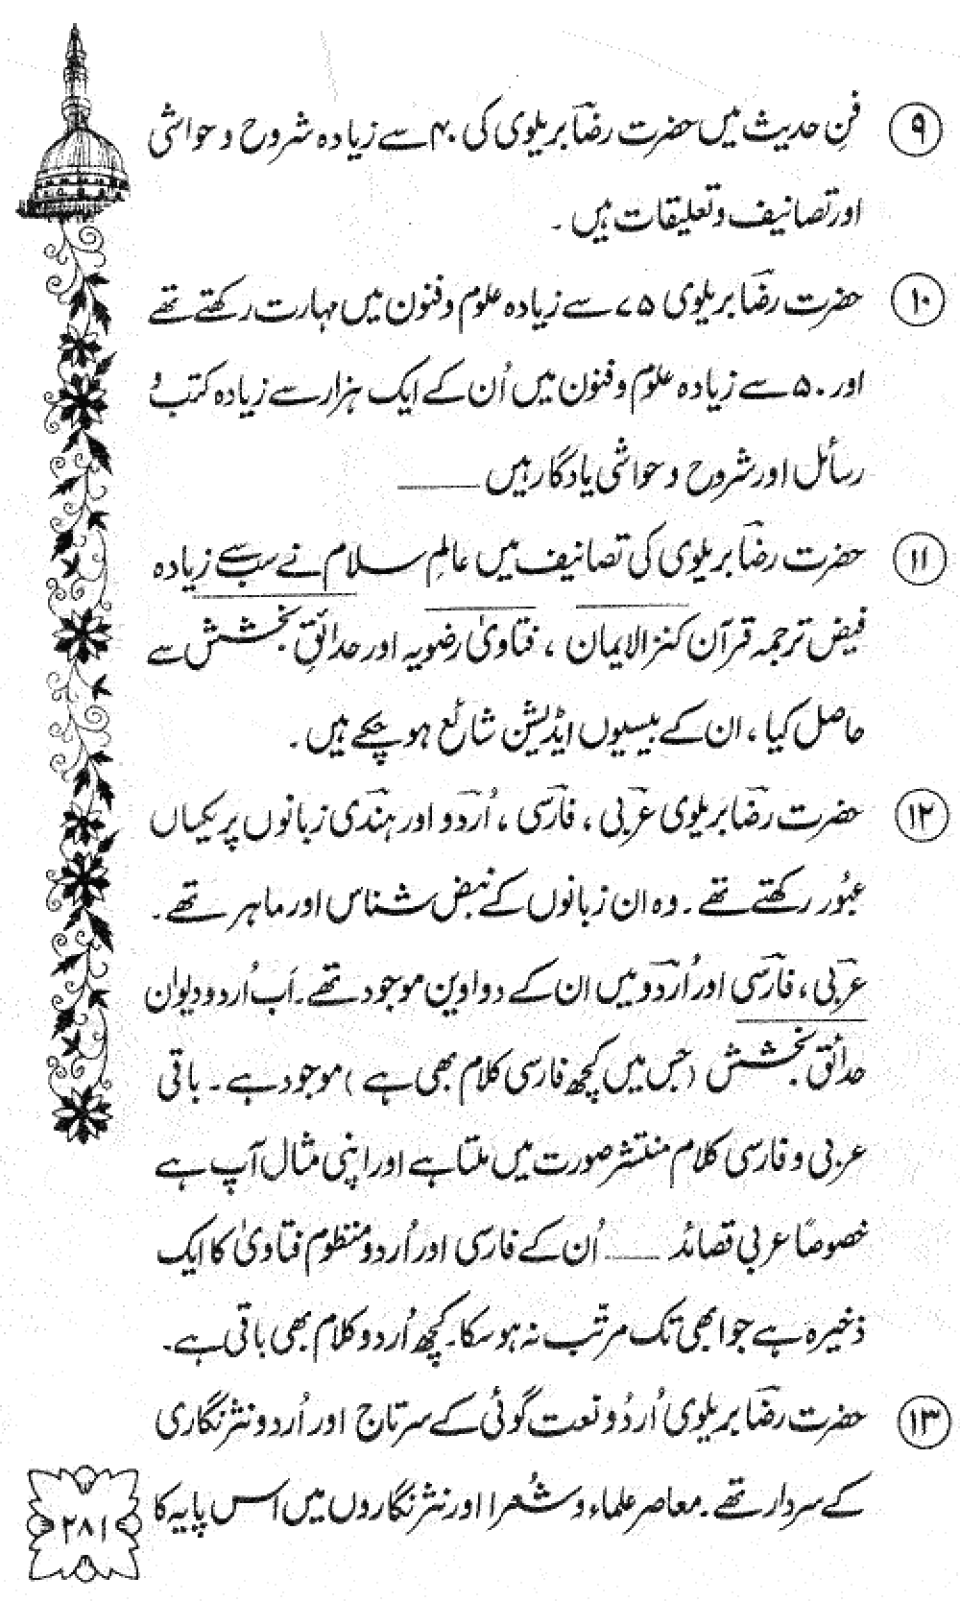 ۹ فنِ حدیث میں حضرت رضاؔ بریلوی کی ۴۰ سے زیادہ شروح و حواشی
اور تصانیف و تعلیقات ہیں۔
۱۰ حضرت رضاؔ بریلوی ۷۵ سے زیادہ علوم و فنون میں مہارت رکھتے تھے
اور ۵۰ سے زیادہ علوم و فنون میں اُن کے ایک ہزار سے زیادہ کتب و
رسائل اور شروح و حواشی یادگار ہیں ____
۱۱ حضرت رضاؔ بریلوی کی تصانیف میں عالمِ اسلام نے سب سے زیادہ
فیض ترجمہ قرآن کنزالایمان ، فتاویٰ رضویہ اور حدائقِ بخشش سے
حاصل کیا ، ان کے بیسیوں ایڈیشن شائع ہو چکے ہیں۔
۱۲ حضرت رضاؔ بریلوی عربی ، فارسی ، اُردو اور ہندی زبانوں پر یکساں
عبُور رکھتے تھے۔ وہ ان زبانوں کے نبض شناس اور ماہر تھے۔
عربی ، فارسی اور اُردو میں ان کے دواوین موجود تھے۔ اَب اُردو دیوان
حدائق بخشش (جس میں کچھ فارسی کلام بھی ہے) موجود ہے۔ باقی
عربی و فارسی کلام منتشر صورت میں ملتا ہے اور اپنی مثال آپ ہے
خصوصًا عربی قصائد ____ اُن کے فارسی اور اُردو منظوم فتاویٰ کا ایک
ذخیرہ ہے جو ابھی تک مرتّب نہ ہو سکا۔ کچھ اُردو کلام بھی باقی ہے۔
۱۳ حضرت رضاؔ بریلوی اُردُو نعت گوئی کے سرتاج اور اُردو نثر نگاری
کے سردار تھے۔ معاصر علماء و شُعرا اور نثر نگاروں میں اس پایہ کا
۲۸۱